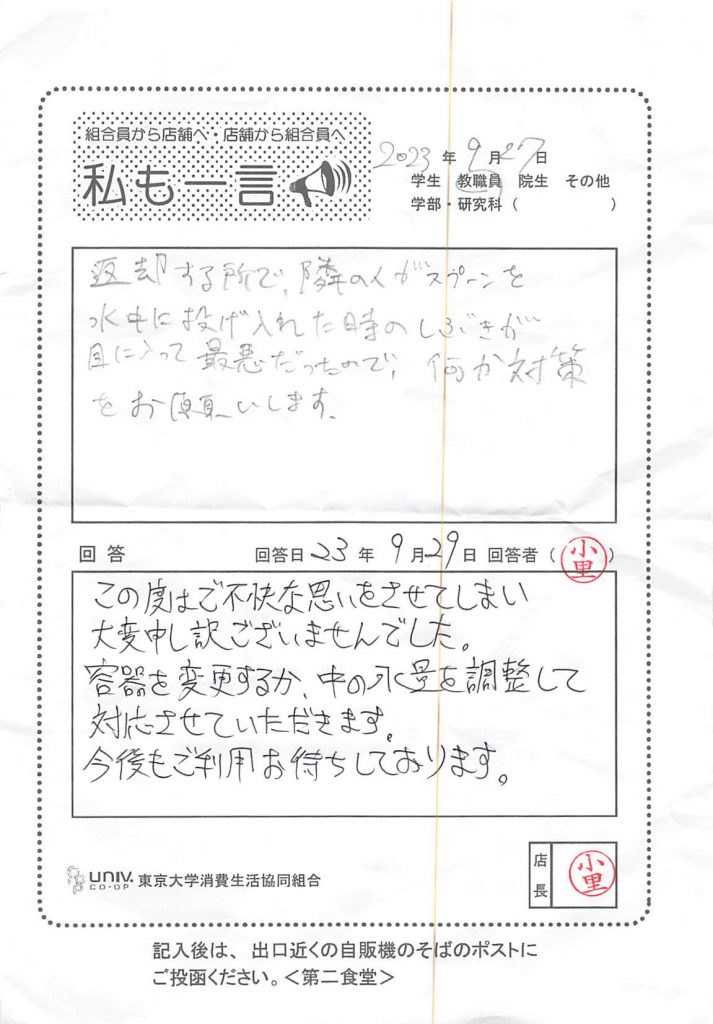 組合員から店舗へ・店舗から組合員へ
私も一言
2023年9月27日
学生 教職員 院生 その他
学部・研究科（ ）
返却する所で、隣の人がスプーンを
水中に投げ入れた時のしぶきが
目に入って最悪だったので、何か対策
をお願いします。
回答 回答日23年9月29日 回答者（小里）
この度はご不快な思いをさせてしまい
大変申し訳ございませんでした。
容器を変更するか、中の水量を調整して
対応させていただきます。
今後もご利用お待ちしております。
UNIV. CO-OP 東京大学消費生活協同組合
店長 小里
記入後は、出口近くの自販機のそばのポストに
ご投函ください。＜第二食堂＞